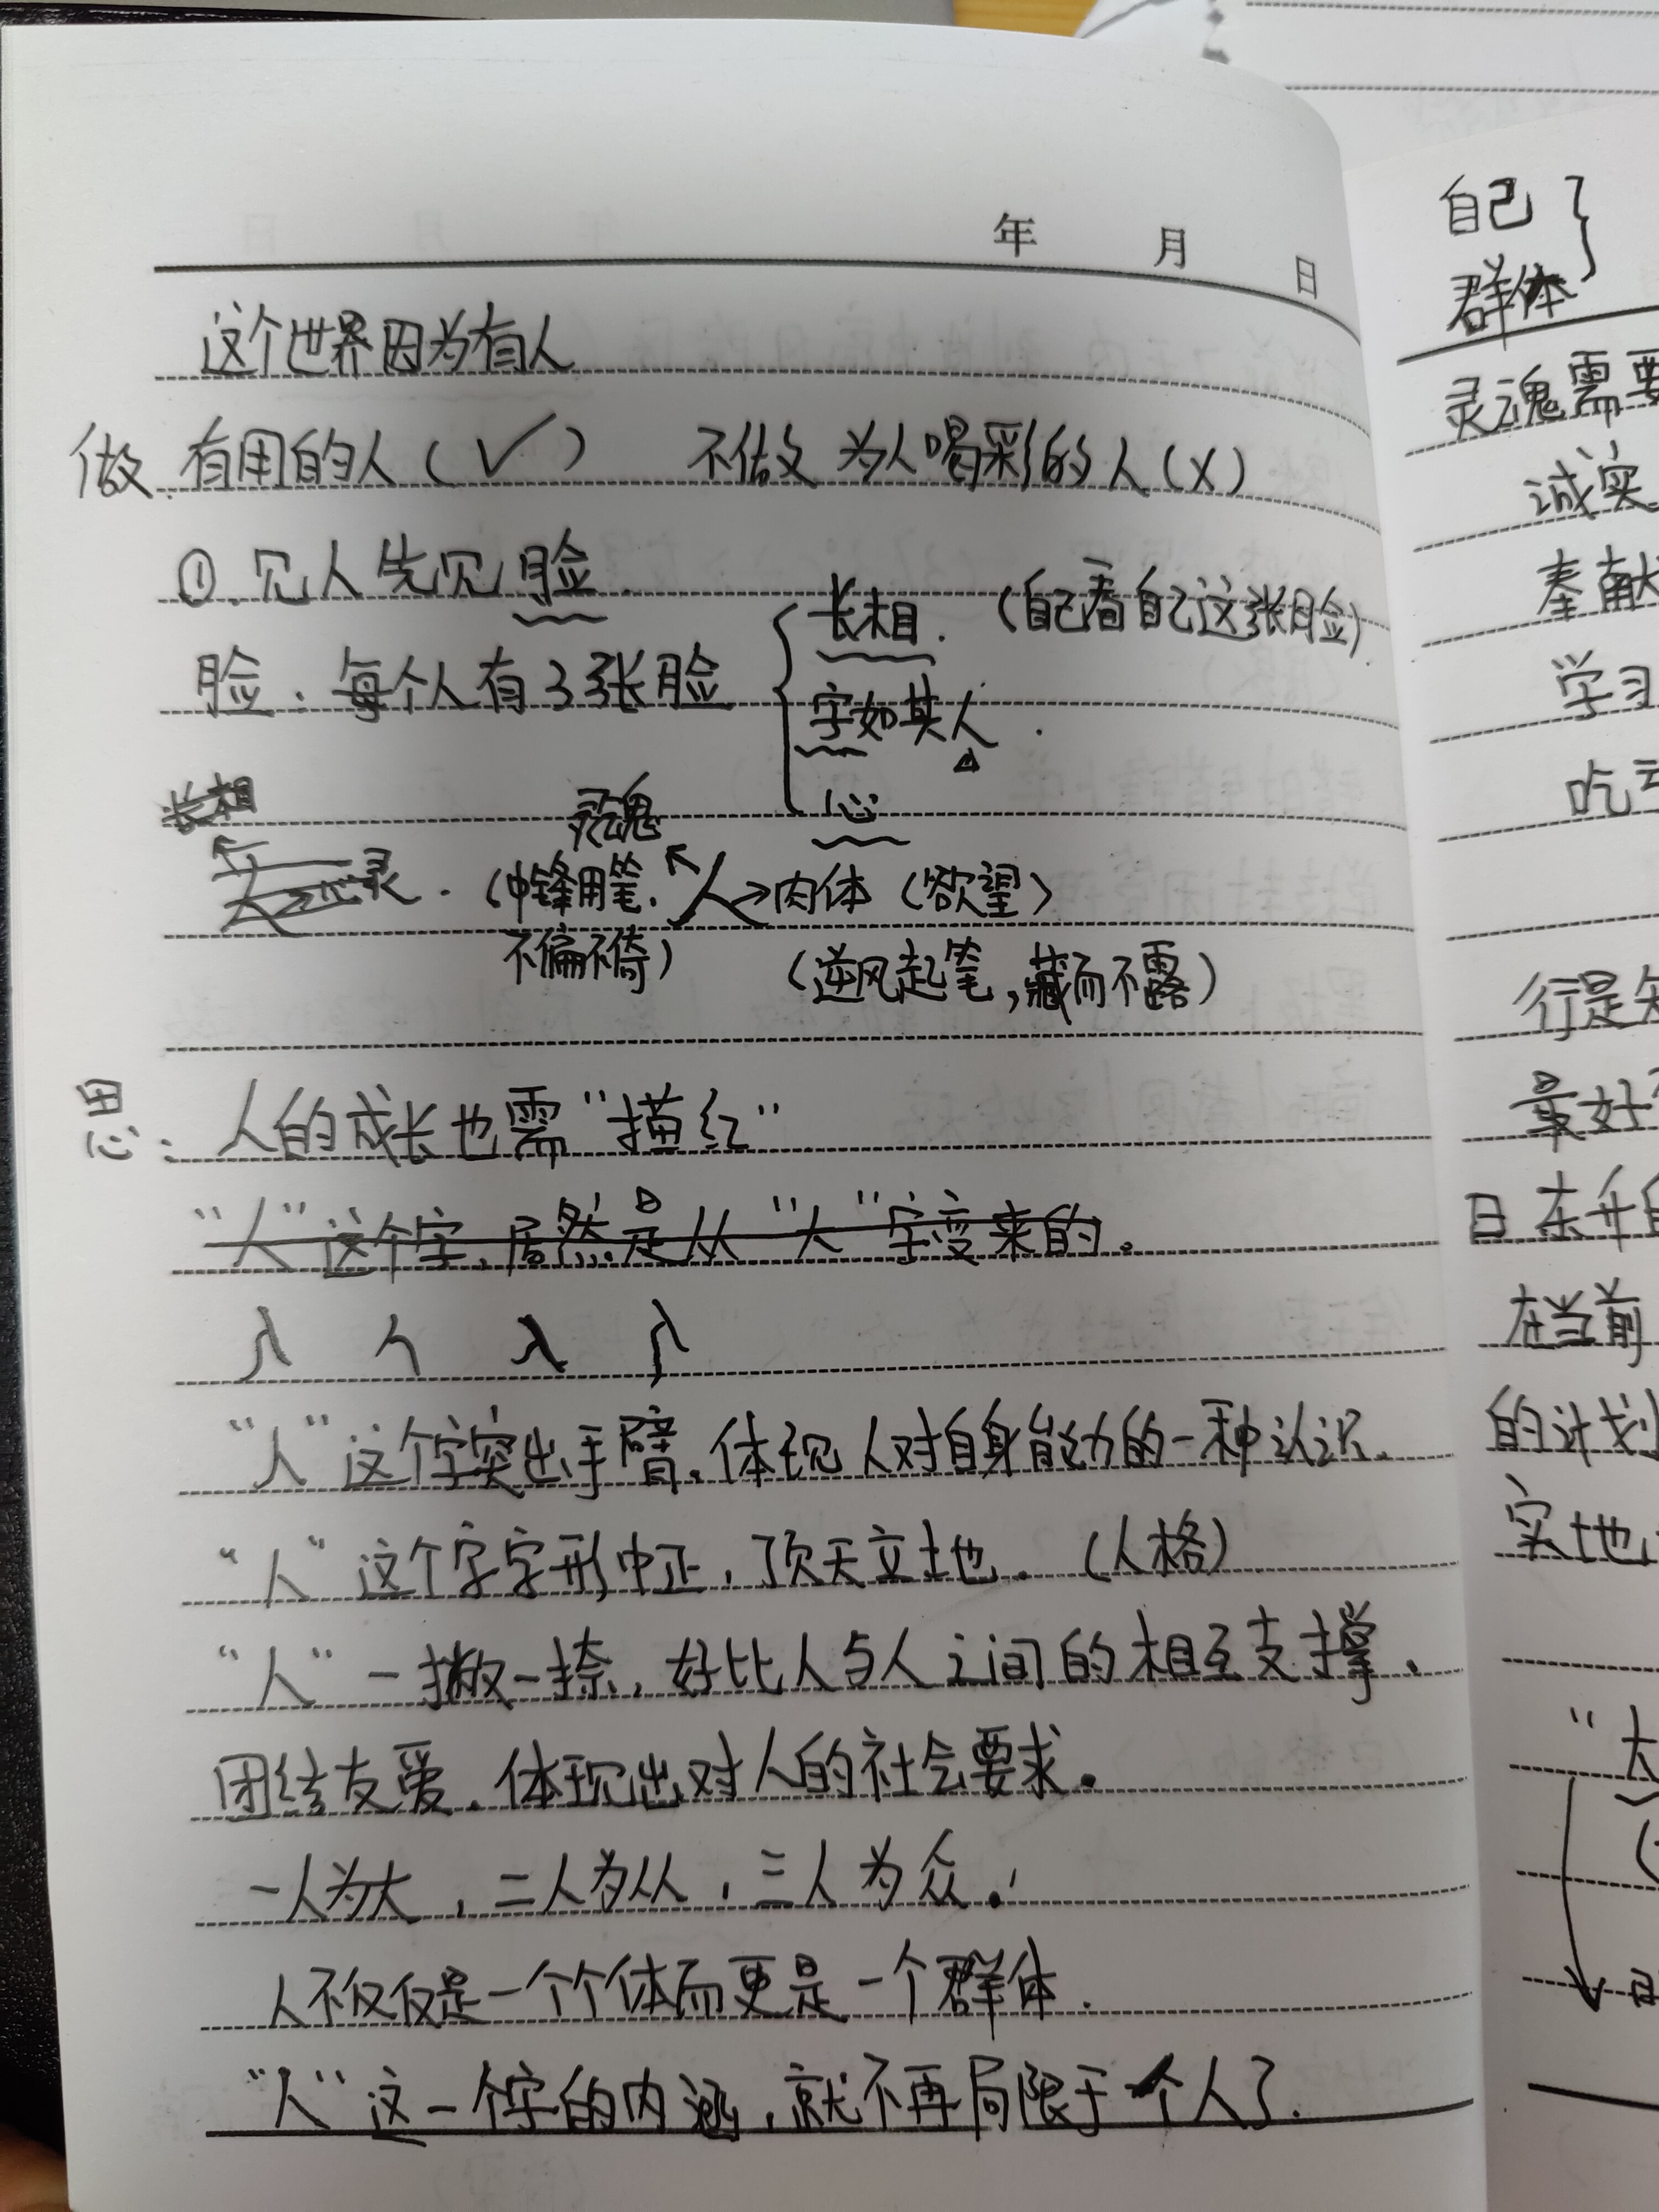 年 月 日
这个世界因为有人
做 有用的人（✓） 不做 为人喝彩的人（X）
①. 见人先见脸.
脸. 每个人有3张脸
长相. （自己看自己这张脸）.
字如其人.
心
长相
灵魂
（中锋用笔. 人→肉体（欲望）
不偏不倚）
（逆风起笔，藏而不露）
思: 人的成长也需“描红”
“人”这个字,居然是从“大”字变来的。
“人”这个字突出手臂.体现人对自身能力的一种认识.
“人”这个字字形中正,顶天立地.（人格）
“人”一撇一捺,好比人与人之间的相互支撑、
团结友爱.体现出对人的社会要求.
一人为大，二人为从，三人为众.
人不仅仅是一个个体而更是一个群体.
“人”这一个字的内涵,就不再局限于个人了.
自己
群体
灵魂需要
诚实
奉献
学习
吃亏
行是知
最好
日 东升自
在当前
的计划
实地
“大